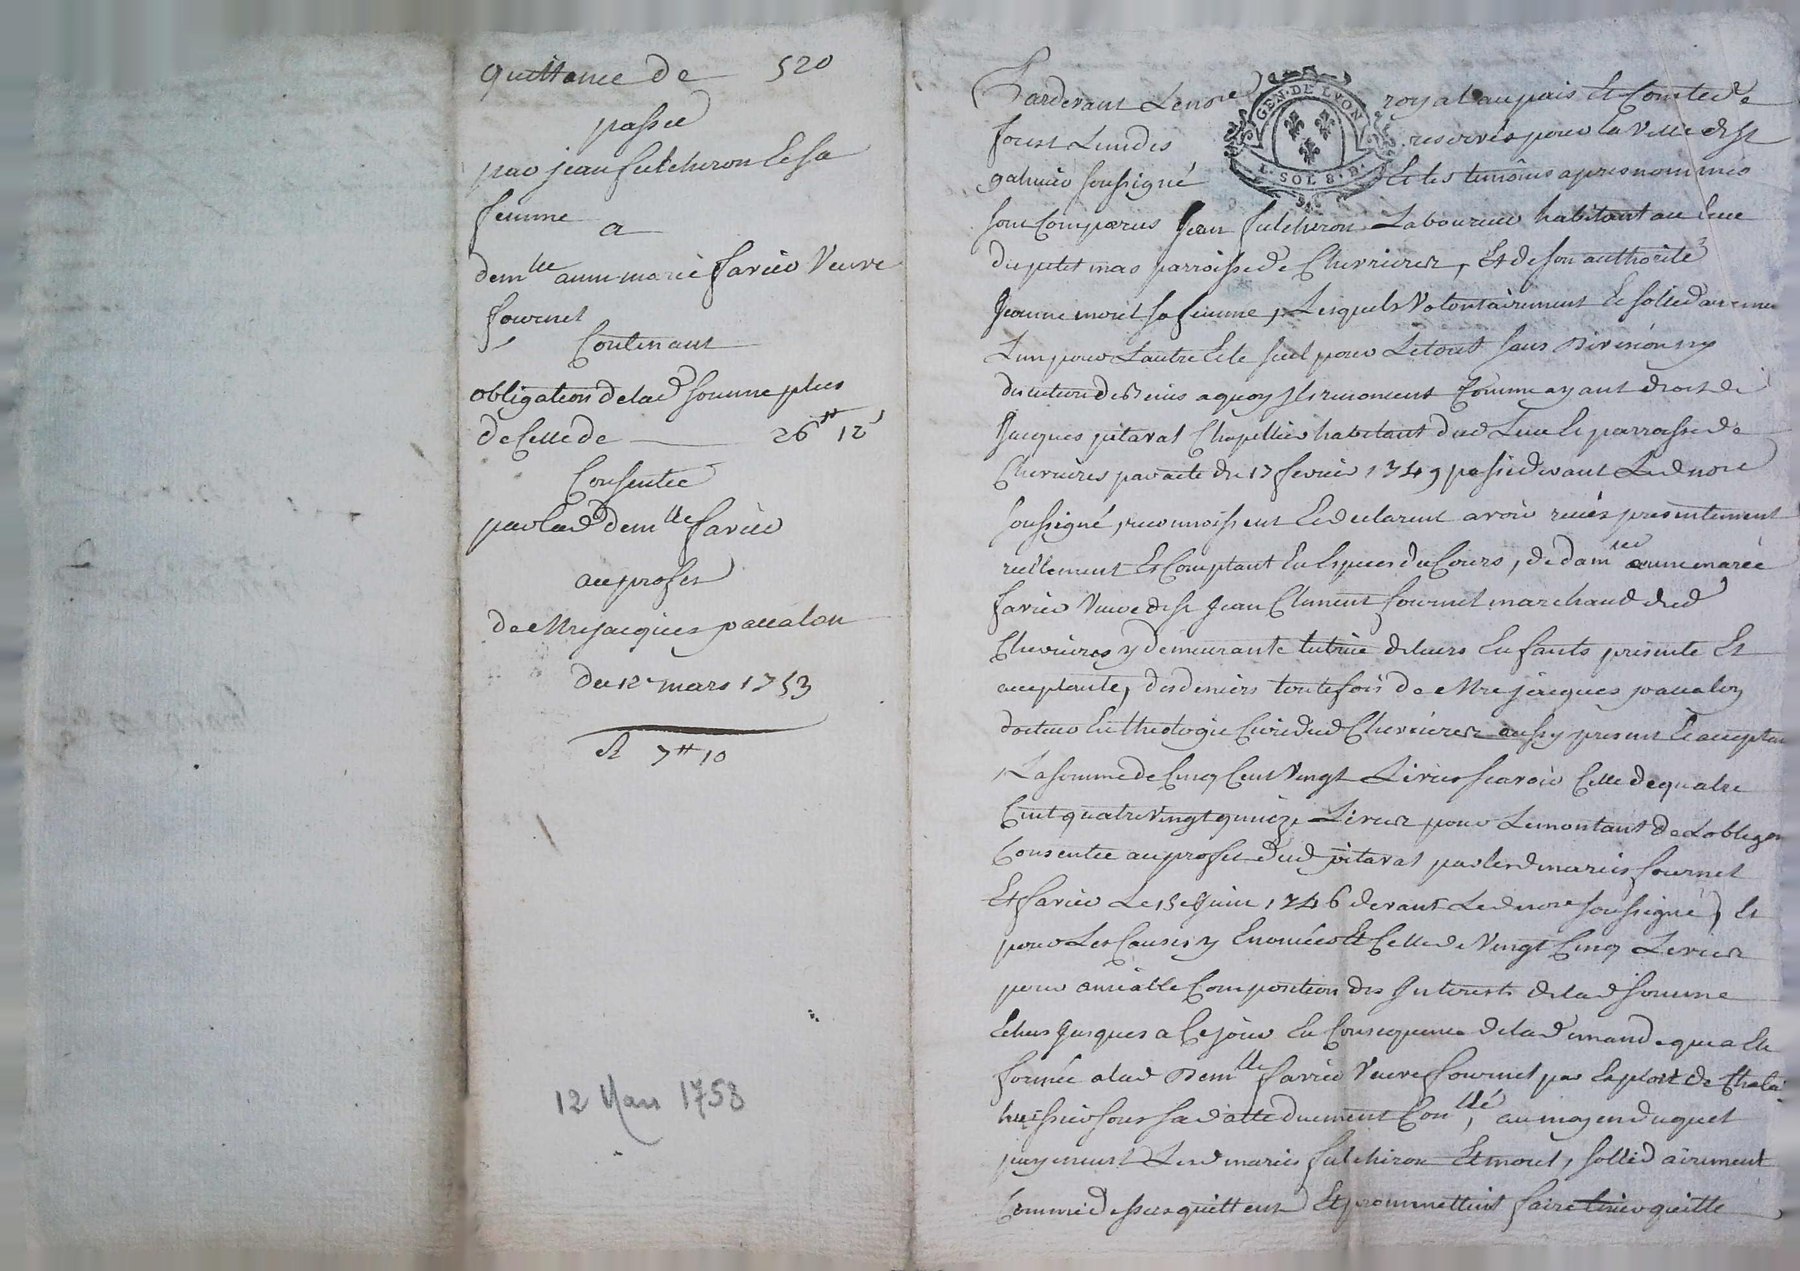 quittance de 520
passée
par jean fulcheron & sa
femme a
demlle anne marie favier Veuve
fournel
Contenant
obligation de lad somme plus
de Celle de 26# 12s
Consentie
par lad demlle favier
au profit
de Mre jacques paualon
du 12 mars 1753
R 7# 10
12 Mars 1753
Pardevant Le nore royal au pais Et Comté de
forest L'un des reservés pour la Ville de St
galmier soussigné Et les temoins apres nommés
GEN. DE LYON
SOL 8 D
Sont Comparus Jean fulcheron Laboureur habitant au lieu
du petit mas parroisse de Chevrieres, Et de son authorité
Jeanne morel sa femme, Lesquels Volontairement & sollidairement
L'un pour L'autre & le seul pour Le tout sans Division ny
discution de biens a quoy Ils renoncent Comme ayant droit de
Jacques pitaval Chapellier habitant dud Lieu & parroisse de
Chevrieres par acte du 17 fevrier 1749 passé devant Led nore
soussigné, reconnoissent & declarent avoir receu presentement
reellement Et Comptant En Especes du Cours, de damlle anne marie
favier Veuve de Sr Jean Clement fournel marchand dud
Chevrieres y demeurante tutrice de leurs Enfants presente Et
acceptante, des deniers toutefois de Mre jacques paualon
docteur En theologie Curé dud Chevrieres aussy present & acceptant
, La somme de Cinq Cent Vingt Livres scavoir Celle de quatre
Cent quatre Vingt quinze Livres pour Le montant de L'obligaon
Consentie au profit dud pitaval par lesd mariés fournel
Et favier Le 15e Juin 1746 devant Led nore soussigné, Et
pour Les Causes y Enoncées Et Celle de Vingt Cinq Livres
pour amiable Composition des Interests de lad somme
Echus Jusques a Ce jour En Consequence de la demande quia Eté
formée a lad Demlle favier Veuve fournel par Exploit de
huissier sous sa datte duement Conllé, au moyen duquel
payement Lesd mariés fulchiron Et morel, sollidairement
Comme dessus quittent Et promettent faire tenir quitte